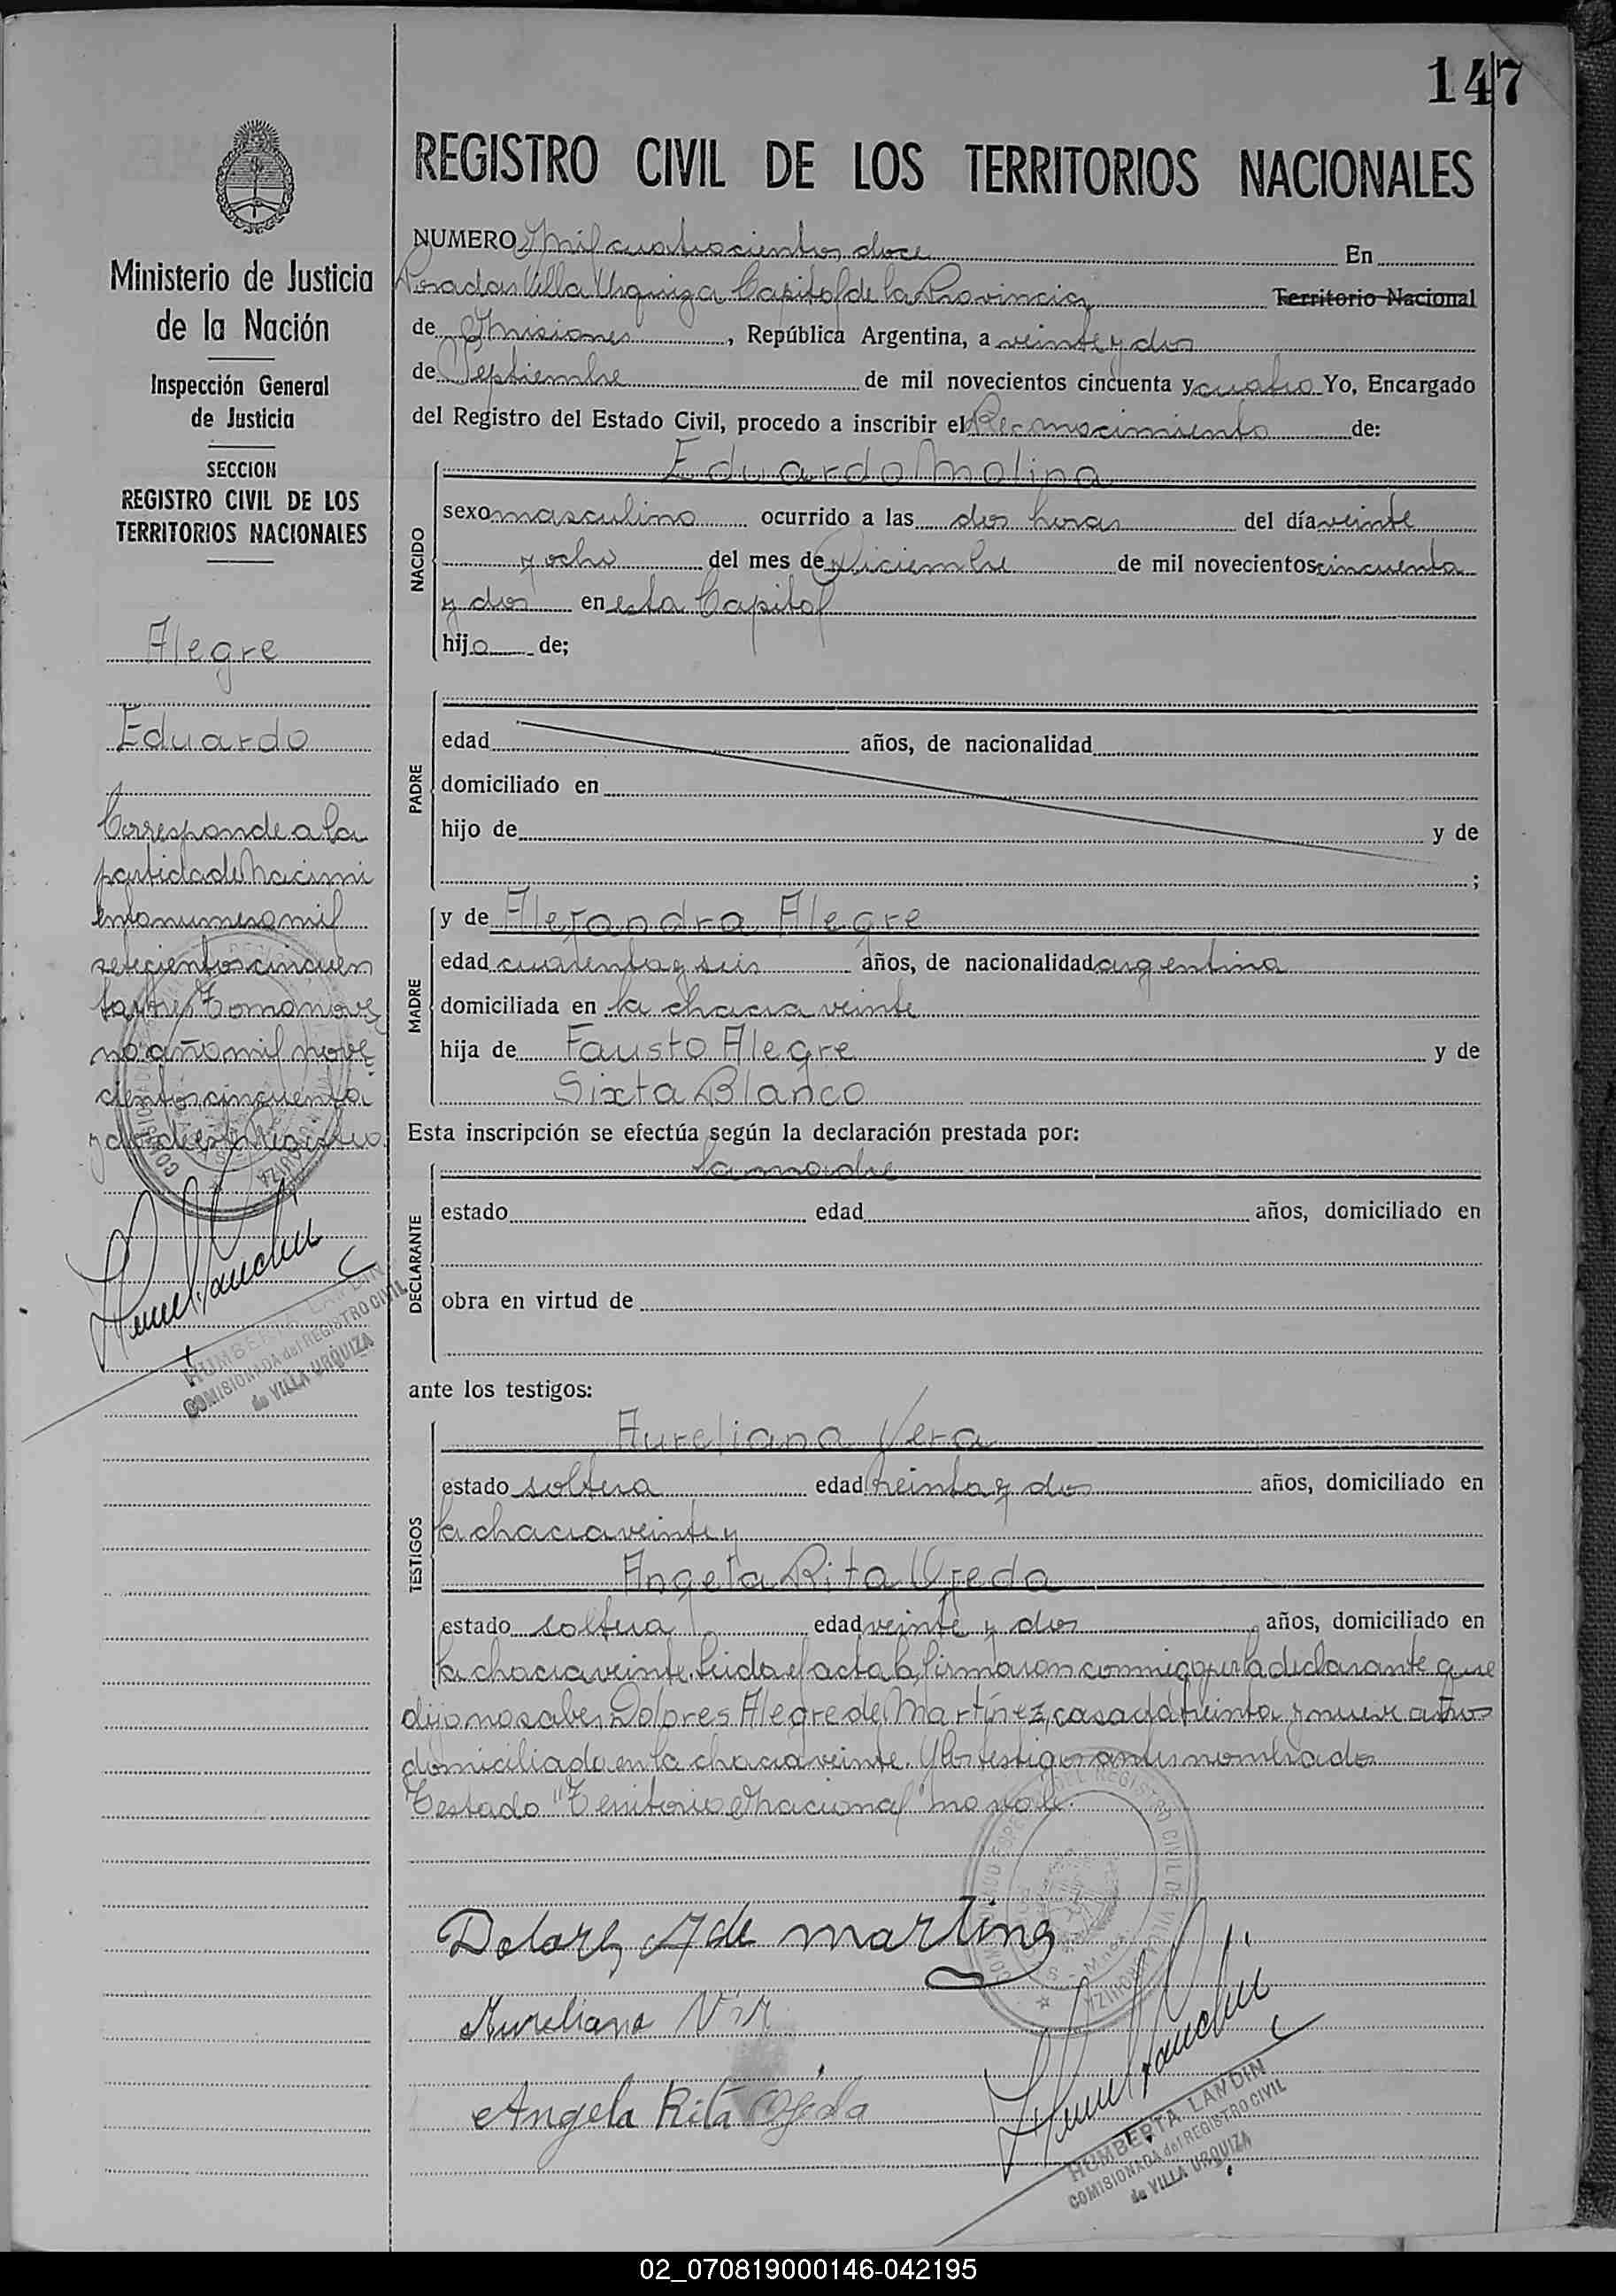 147
REGISTRO CIVIL DE LOS TERRITORIOS NACIONALES
Ministerio de Justicia
de la Nación
Inspección General
de Justicia
SECCION
REGISTRO CIVIL DE LOS
TERRITORIOS NACIONALES
Alegre
Eduardo
Corresponde a la
partida de Nacimi
ento numero mil
setecientos cincuen
ta y tres Tomo nove
no año mil nove
cientos cincuenta
y dos de este Registro
HUMBERTA LANDIN
COMISIONADA del REGISTRO CIVIL
de VILLA URQUIZA
NUMERO Mil cuatrocientos doce En
Posadas Villa Urquiza Capital de la Provincia Territorio Nacional
de Misiones, República Argentina, a veinte y dos
de Septiembre de mil novecientos cincuenta y cuatro Yo, Encargado
del Registro del Estado Civil, procedo a inscribir el Reconocimiento de:
NACIDO
Eduardo Molina
sexo masculino ocurrido a las dos horas del día veinte
y ocho del mes de Diciembre de mil novecientos cincuenta
y dos en esta Capital
hijo de;
PADRE
edad años, de nacionalidad
domiciliado en
hijo de y de
;
MADRE
y de Alejandra Alegre
edad cuarenta y seis años, de nacionalidad argentina
domiciliada en la chacra veinte
hija de Fausto Alegre y de
Sixta Blanco
Esta inscripción se efectúa según la declaración prestada por:
DECLARANTE
la madre
estado edad años, domiciliado en
obra en virtud de
ante los testigos:
TESTIGOS
Aureliana Vera
estado soltera edad treinta y dos años, domiciliado en
la chacra veinte y
Angela Rita Ojeda
estado soltera edad veinte y dos años, domiciliado en
la chacra veinte. Leida el acta la firmaron conmigo por la declarante que
dijo no saber Dolores Alegre de Martínez, casada treinta y nueve años
domiciliada en la chacra veinte. Y los testigos antes nombrado
Testado "Territorio Nacional" no vale.
Dolores A de martinez
Aureliana Vera
Angela Rita Ojeda
HUMBERTA LANDIN
COMISIONADA del REGISTRO CIVIL
de VILLA URQUIZA
02_070819000146-042195